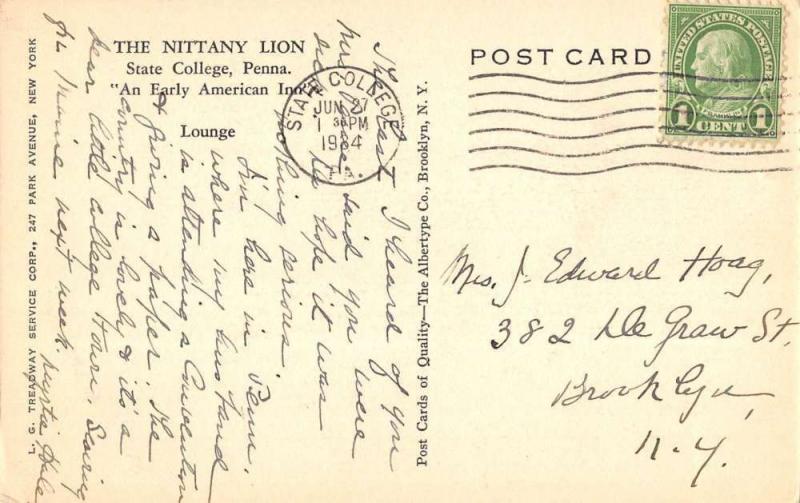 THE NITTANY LION
State College, Penna.
"An Early American Inn"
Lounge
L. G. TREADWAY SERVICE CORP., 247 PARK AVENUE, NEW YORK
The last I heard of you
Mrs. said you were
sick. Do hope it was
nothing serious.
I'm here in Penn.
where my husband
is attending a Convention
& giving a paper. The
country is lovely & it's a
dear little college town. Seeing
next week.
Hale
Post Cards of Quality—The Albertype Co., Brooklyn, N. Y.
POST CARD
STATE COLLEGE
JUN 27
1 30 PM
1934
PA.
UNITED STATES POSTAGE
FRANKLIN
1 CENT 1
Mrs. J. Edward Hoag,
382 De Graw St.
Brooklyn,
N.Y.